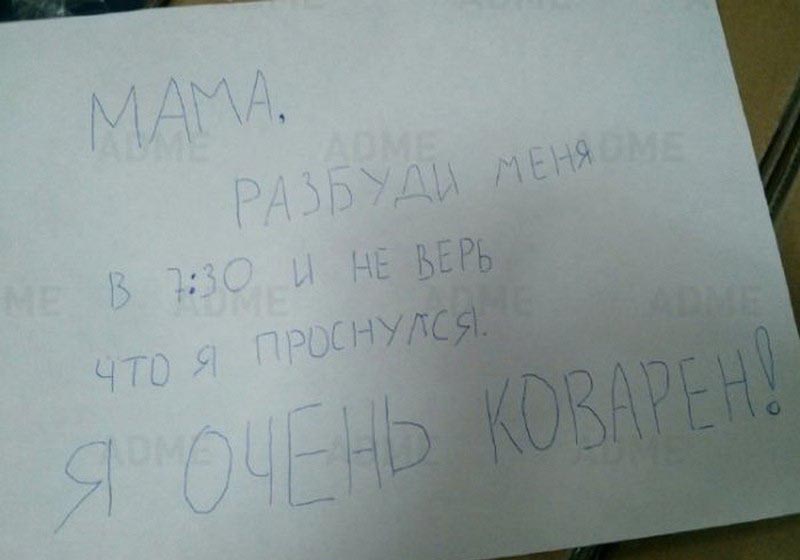 МАМА,
РАЗБУДИ МЕНЯ
В 7:30 И НЕ ВЕРЬ
ЧТО Я ПРОСНУЛСЯ.
Я ОЧЕНЬ КОВАРЕН!
ADME
ADME
ADME
ADME
ADME
ADME
ADME
ADME
ADME
ADME